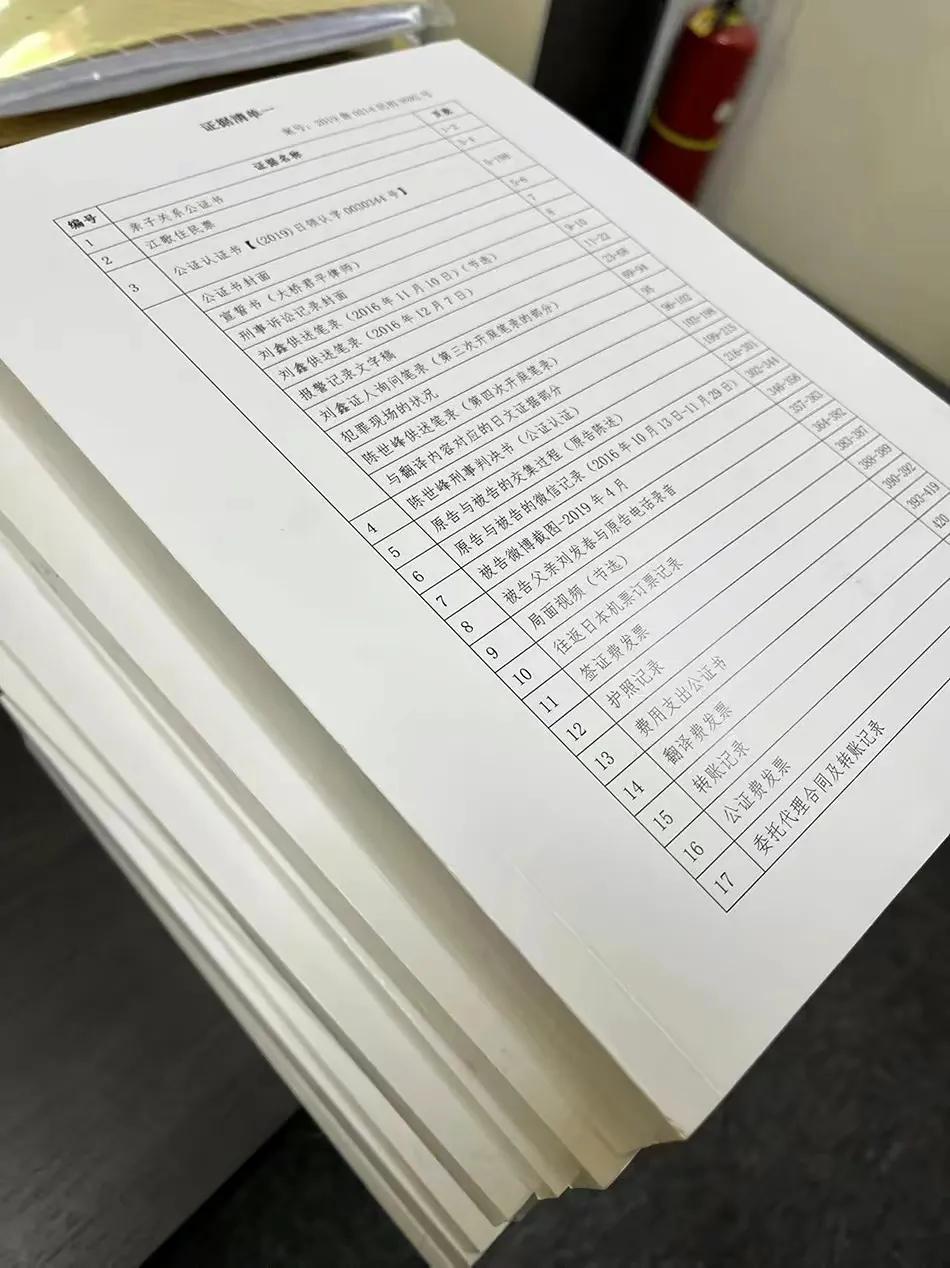 证据清单一
案号：2019鲁
编号 证据名称 页数
1 亲子关系公证书 1-2
2 江歌住民票 3-4
3 公证认证书【(2019)日领认字0030344号】 5-198
公证书封面 5-6
宣誓书（大桥君平律师） 7
刑事诉讼记录封面 8
刘鑫供述笔录（2016年11月10日）(节选) 9-10
刘鑫供述笔录（2016年12月7日） 11-22
报警记录文字稿 23-68
刘鑫证人询问笔录（第三次开庭笔录的部分） 69-94
犯罪现场的状况 95
陈世峰供述笔录（第四次开庭笔录） 96-102
与翻译内容对应的日文证据部分 103-198
4 陈世峰刑事判决书（公证认证） 199-215
5 原告与被告的交集过程（原告陈述） 216-301
6 原告与被告的微信记录（2016年10月13日-11月29日） 302-344
7 被告微博截图-2019年4月
8 被告父亲刘发春与原告电话录音 357-363
9 局面视频（节选） 364-382
10 往返日本机票订票记录 383-387
11 签证费发票 388-389
12 护照记录 390-392
13 费用支出公证书 393-419
14 翻译费发票 420
15 转账记录
16 公证费发票
17 委托代理合同及转账记录